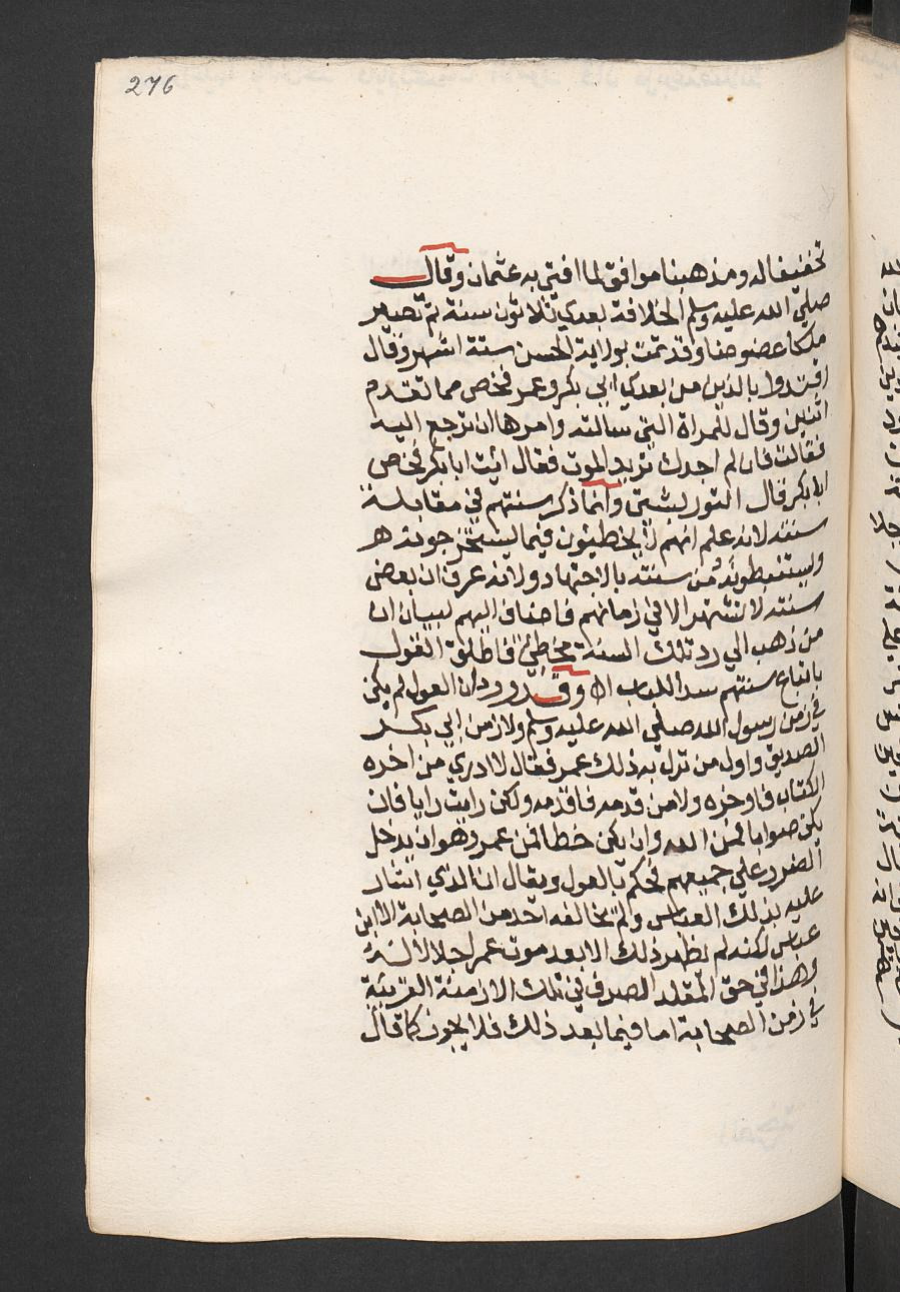 276
تخفيفا له ومذهبنا موافق لما افتى به عثمان وقال
صلي الله عليه وسلم الخلافة بعدي ثلاثون سنة ثم تصير
ملكا عضوضا وقد تمت بولاية الحسن ستة اشهر وقال
اقتدوا بالذين من بعدي ابي بكر وعمر فخص مما تقدم
اثنين وقال للمراة التي سالته وامرها ان ترجع اليه
فقالت فان لم اجدك تريد الموت فقال ائت ابا بكر فخص
ابا بكر قال التوربشتي وانما ذكر سنتهم في مقابلة
سنته لانه علم انهم لا يخطئون فيما يستخرجونه
ويستنبطونه من سنته بالاجتهاد ولانه عرف ان بعض
سنته لا تشتهر الا في زمانهم فاضاف اليهم لبيان ان
من ذهب الي رد تلك السنة مخطئ فاطلق القول
باتباع سنتهم سدا للباب اه وقد ورد ان العول لم يكن
في زمن رسول الله صلي الله عليه وسلم ولا زمن ابي بكر
الصديق واول من نزل به ذلك عمر فقال لا ادري من اخره
الكتاب فاوخره ولا من قدمه فاقدمه ولكن رايت رايا فان
يكن صوابا فمن الله وان يكن خطا فمن عمر وهو ان يدخل
الضرر علي جميعهم فحكم بالعول ويقال ان الذي اشار
عليه بذلك العباس ولم يخالفه احد من الصحابة الا ابن
عباس لكنه لم يظهر ذلك الا بعد موت عمر اجلالا له
وهذا في حق المقلد الصرف في تلك الازمنة القريبة
في زمن الصحابة اما فيما بعد ذلك فلا يجوز كما قال